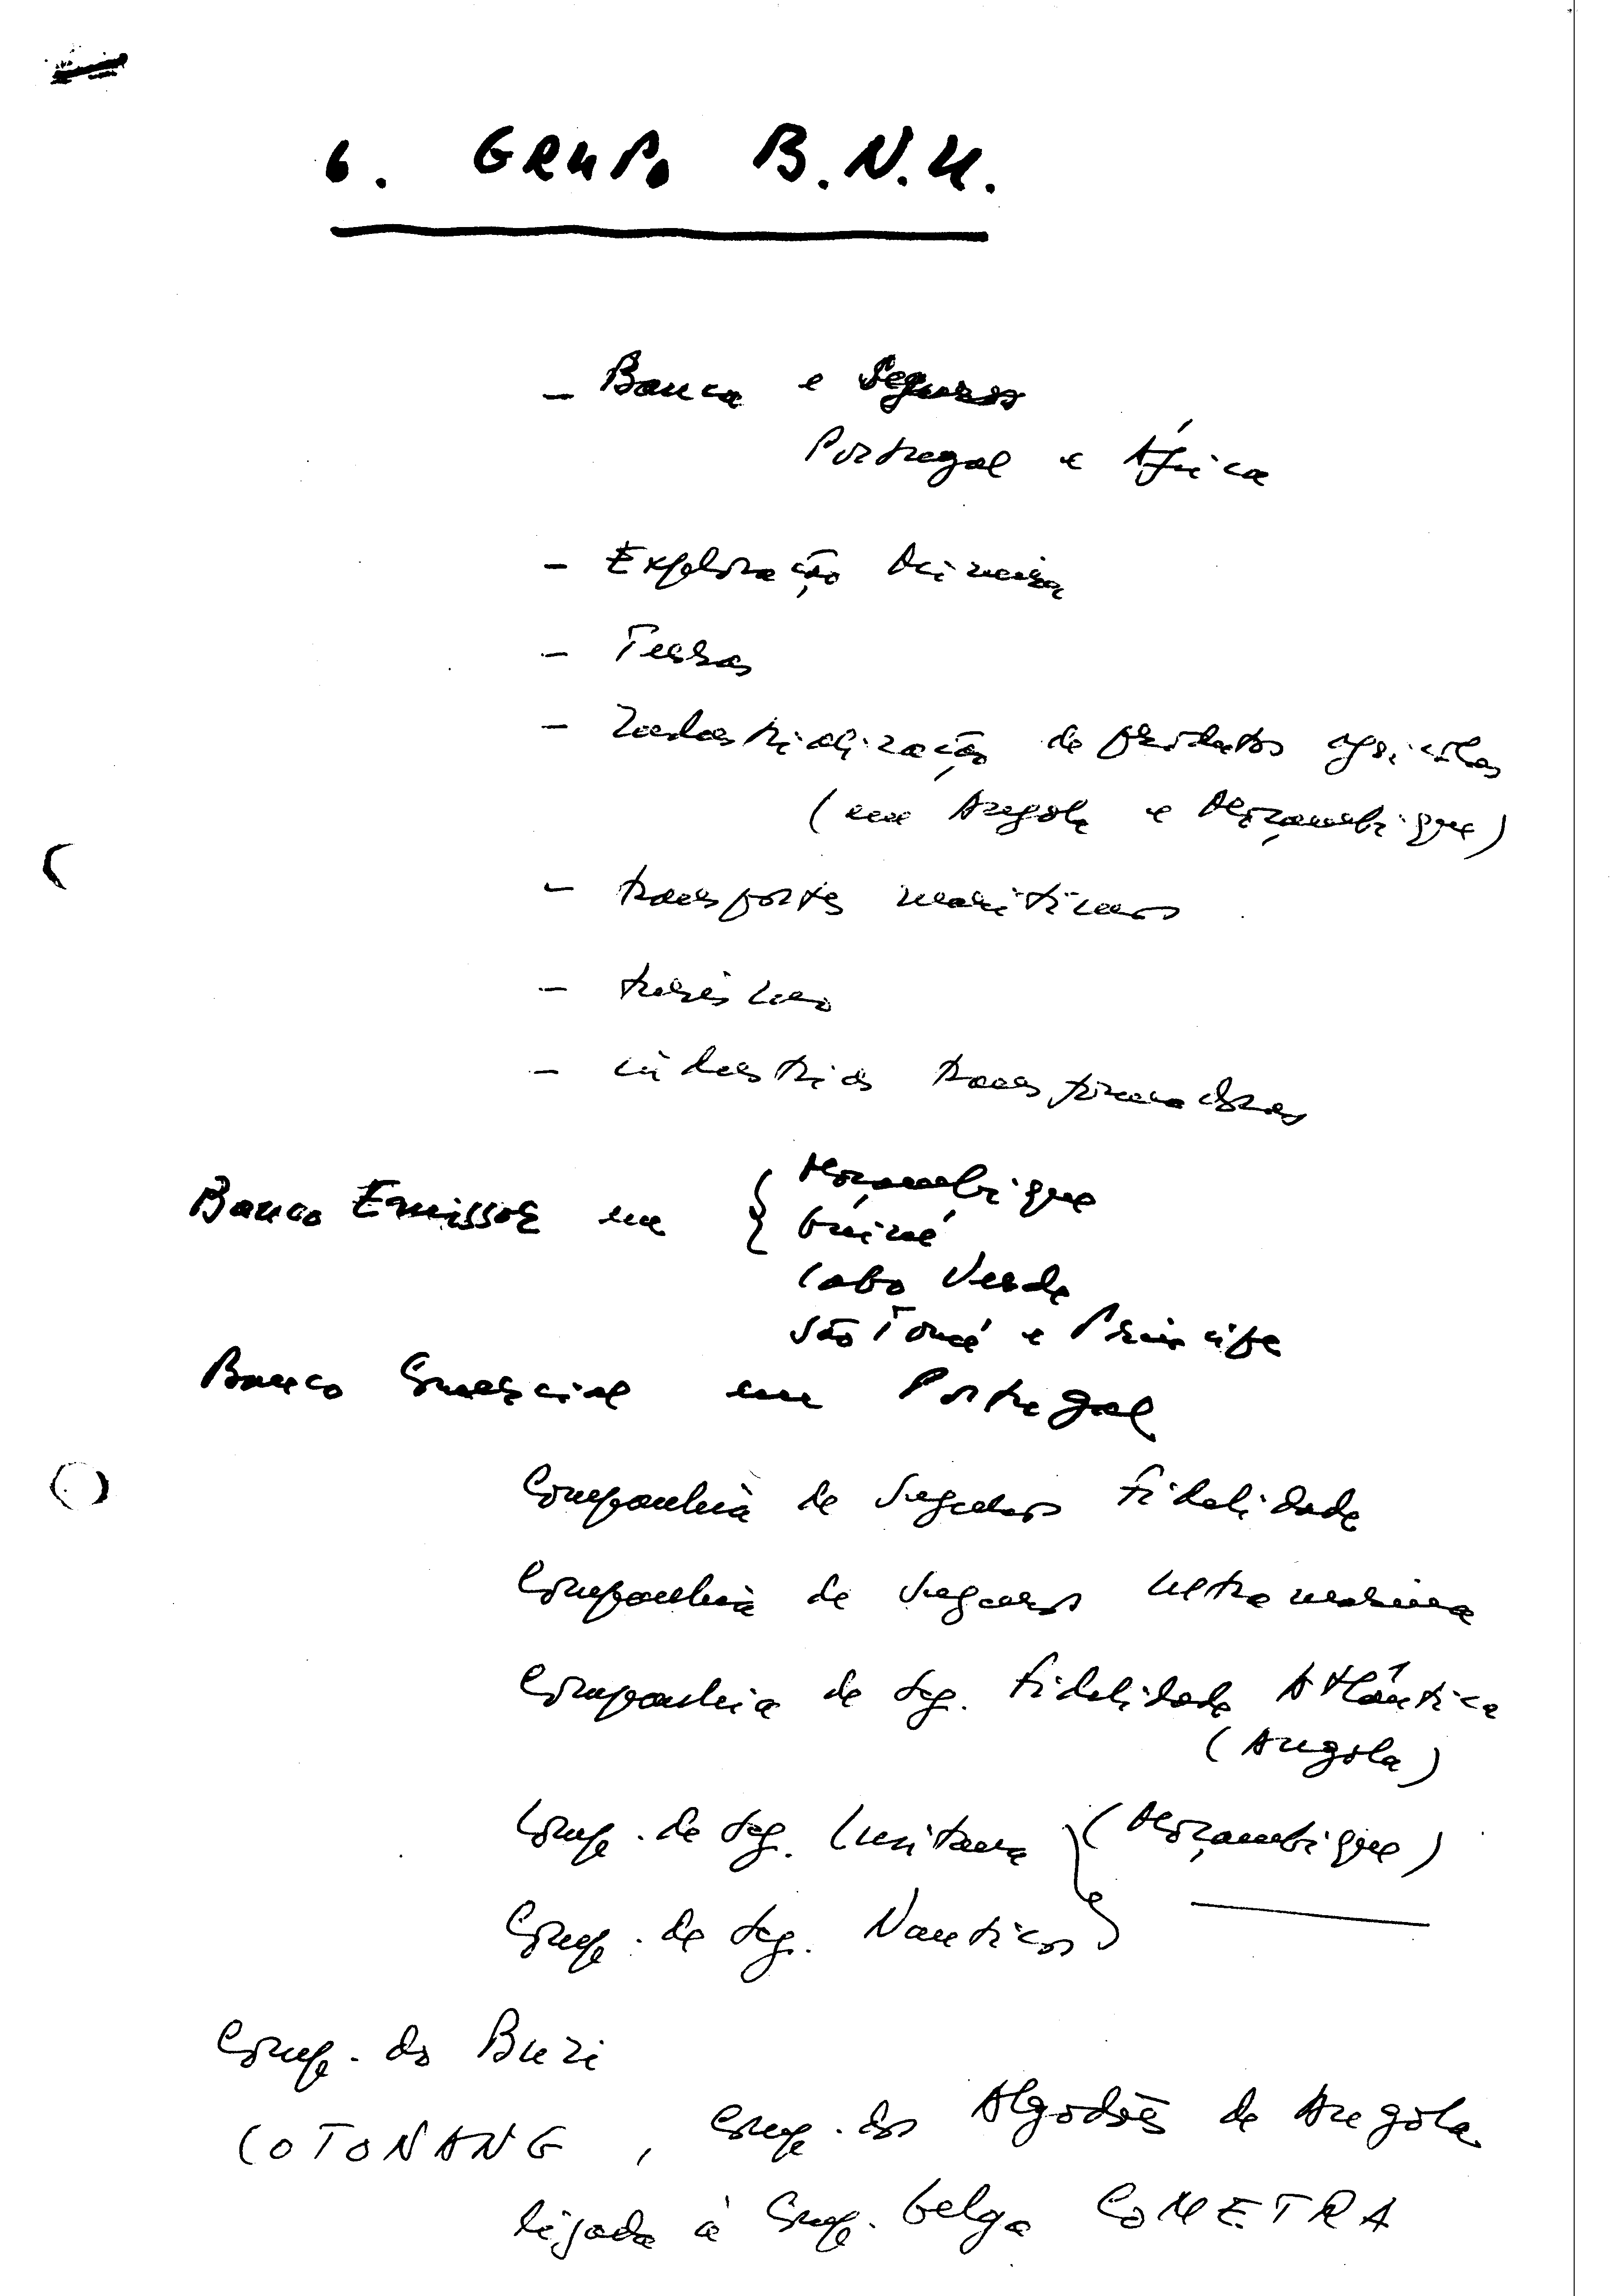 6. GRUPO B.N.U.
- Banca e Seguros
Portugal e África
- Exploração Mineira
- Terras
- Industrialização de produtos agrícolas
(em Angola e Moçambique)
- transportes marítimos
- turismo
- indústrias transformadoras
Banco Emissor em { Moçambique
Guiné
Cabo Verde
São Tomé e Príncipe
Banco Comercial em Portugal
Companhia de Seguros Fidelidade
Companhia de Seguros Ultramarina
Companhia de Seg. Fidelidade Atlântica
(Angola)
Comp. de Seg. Lusitana } (Moçambique)
Comp. de Seg. Nauticus
Comp. do Buzi
COTONANG, Comp. dos Algodões de Angola
ligada à Comp. belga COMETRA